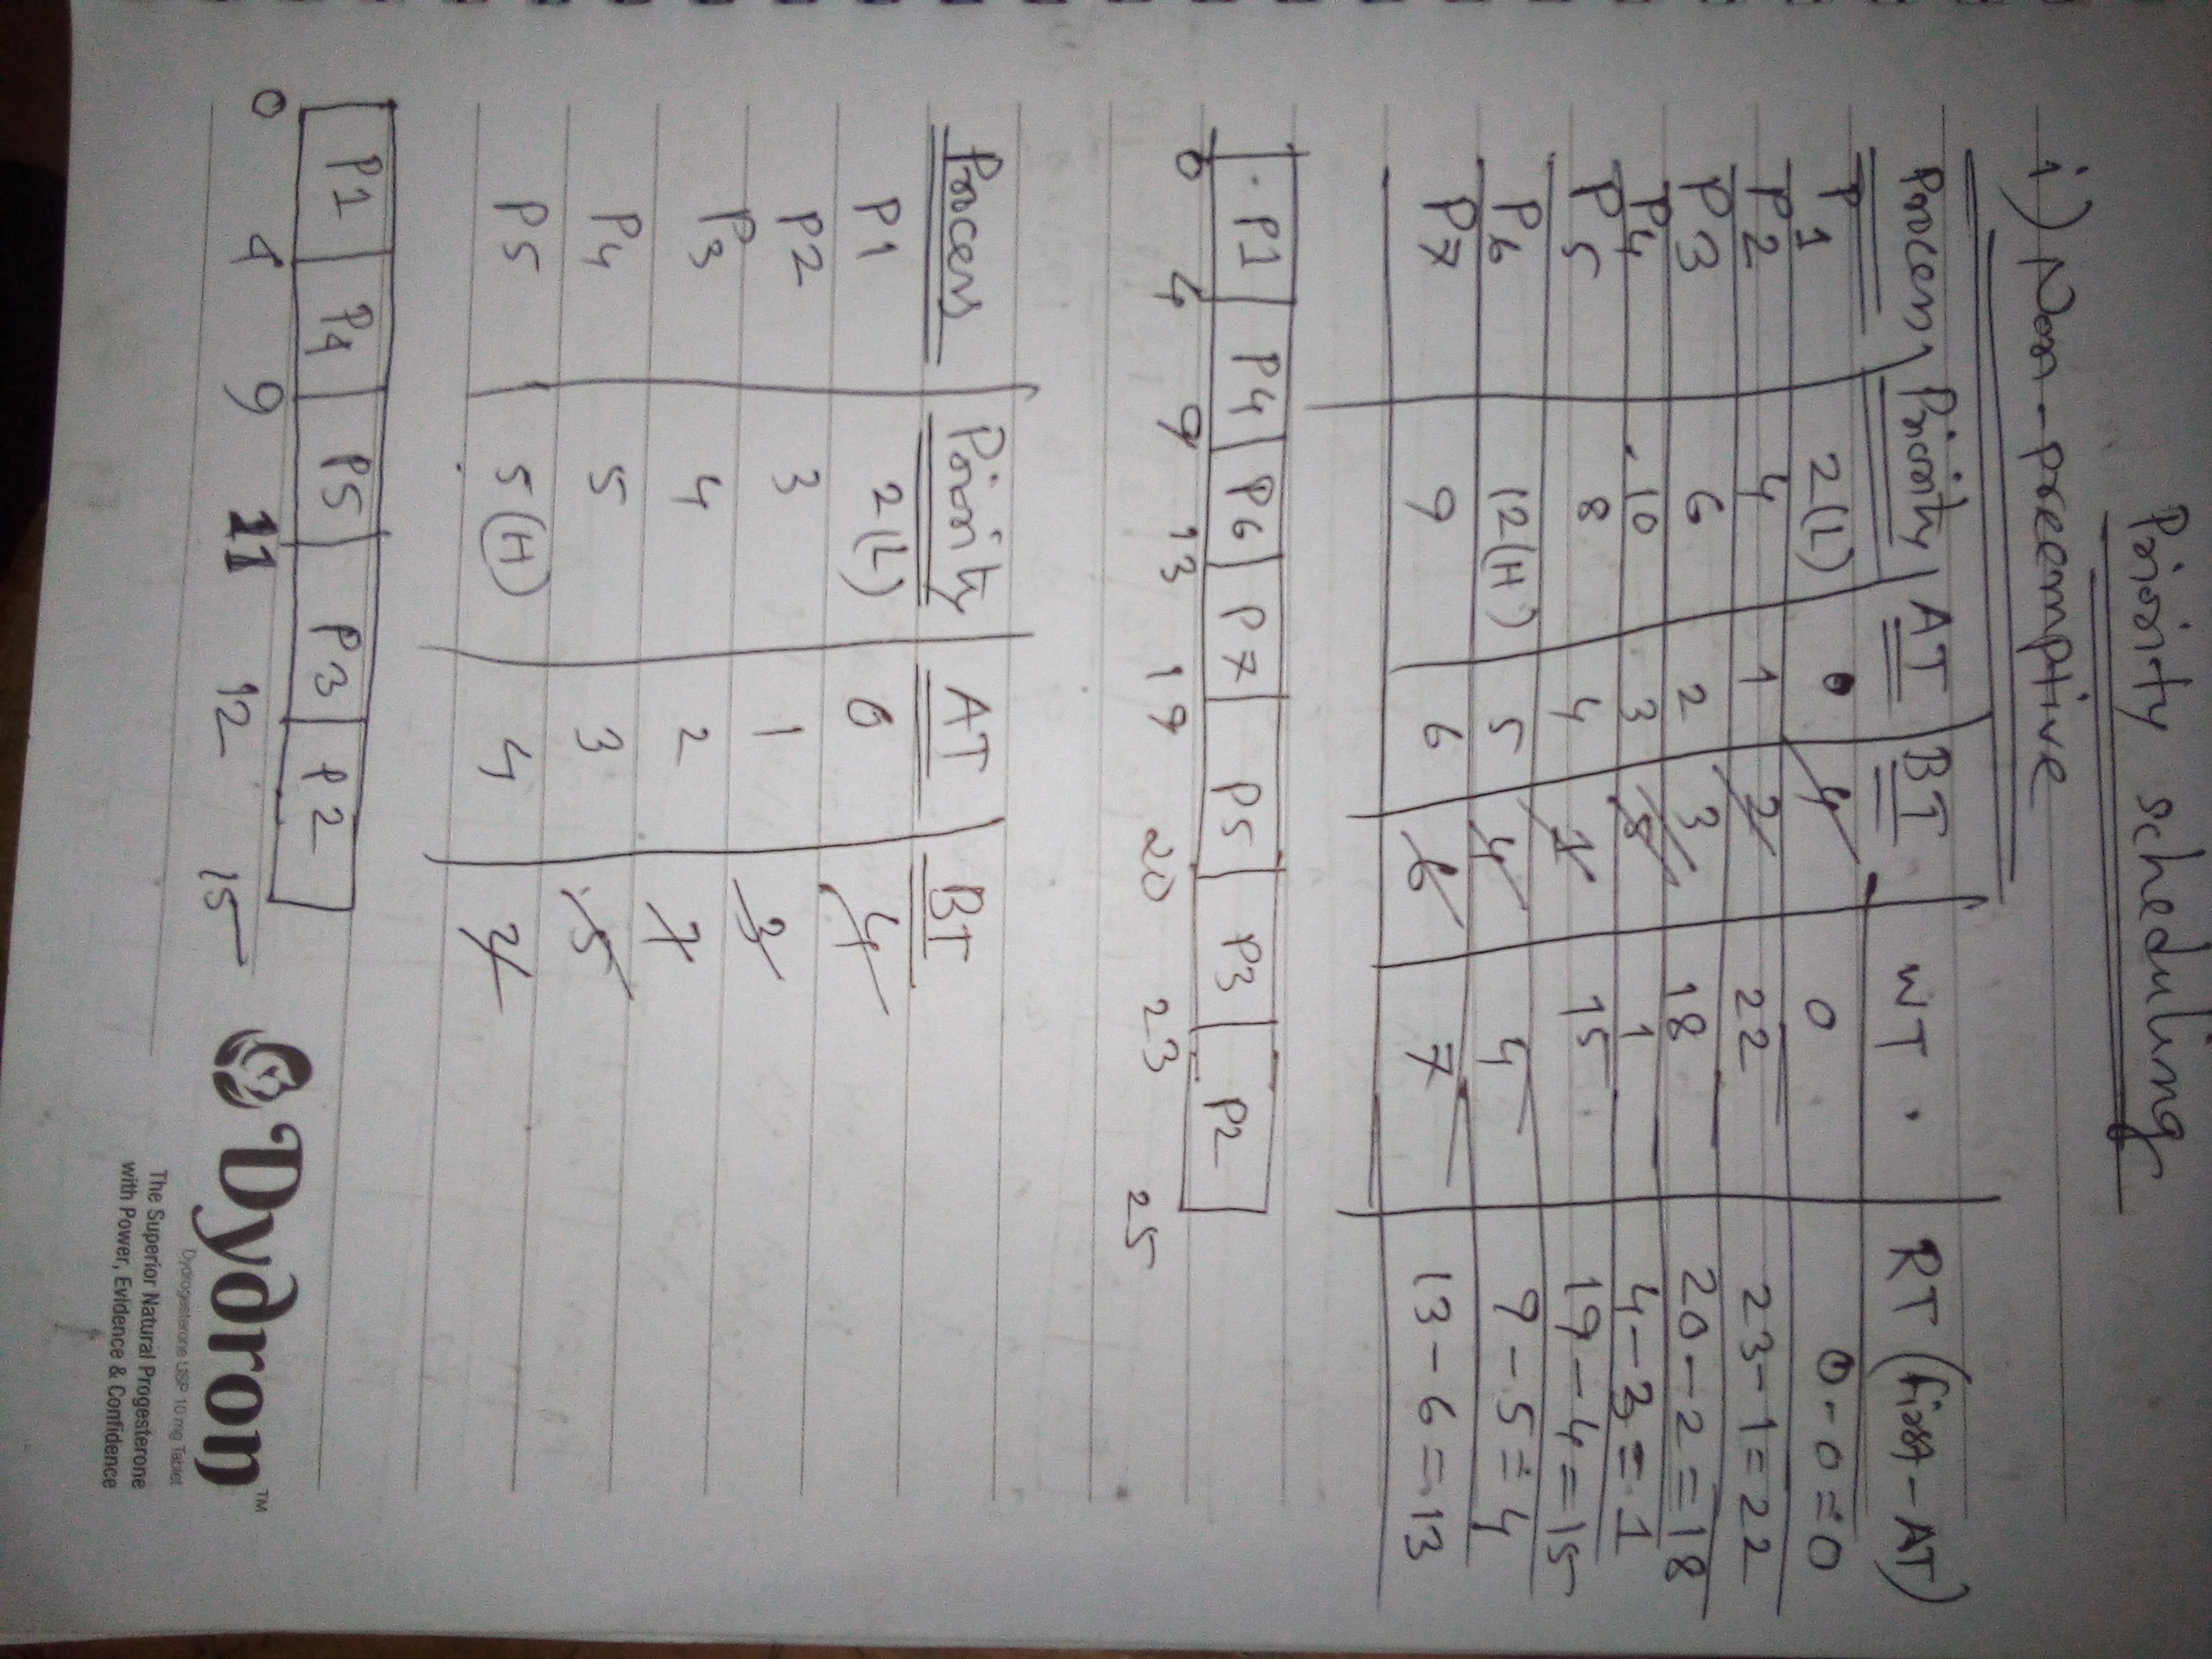 Priority scheduling
i) Non-preemptive
Process Priority AT BT WT RT (first - AT)
P1 2(L) 0 4 0 0-0=0
P2 4 1 2 22 23-1=22
P3 6 2 3 18 20-2=18
P4 10 3 5 1 4-3=1
P5 8 4 1 15 19-4=15
P6 12(H) 5 4 4 9-5=4
P7 9 6 6 7 13-6=13
P1 P4 P6 P7 P5 P3 P2
0 4 9 13 19 20 23 25
Process Priority AT BT
P1 2(L) 0 4
P2 3 1 3
P3 4 2 1
P4 5 3 5
P5 5(H) 4 2
P1 P4 P5 P3 P2
0 4 9 11 12 15
Dydron™
Dydrogesterone USP 10 mg Tablet
The Superior Natural Progesterone
with Power, Evidence & Confidence